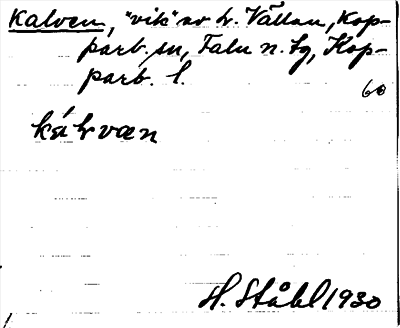 Kalven, "vik" av h. Vällan, Kop-
parb. sn, Falu n. tg, Kop-
parb. l.
60
kálvæn
H. Ståhl 1930